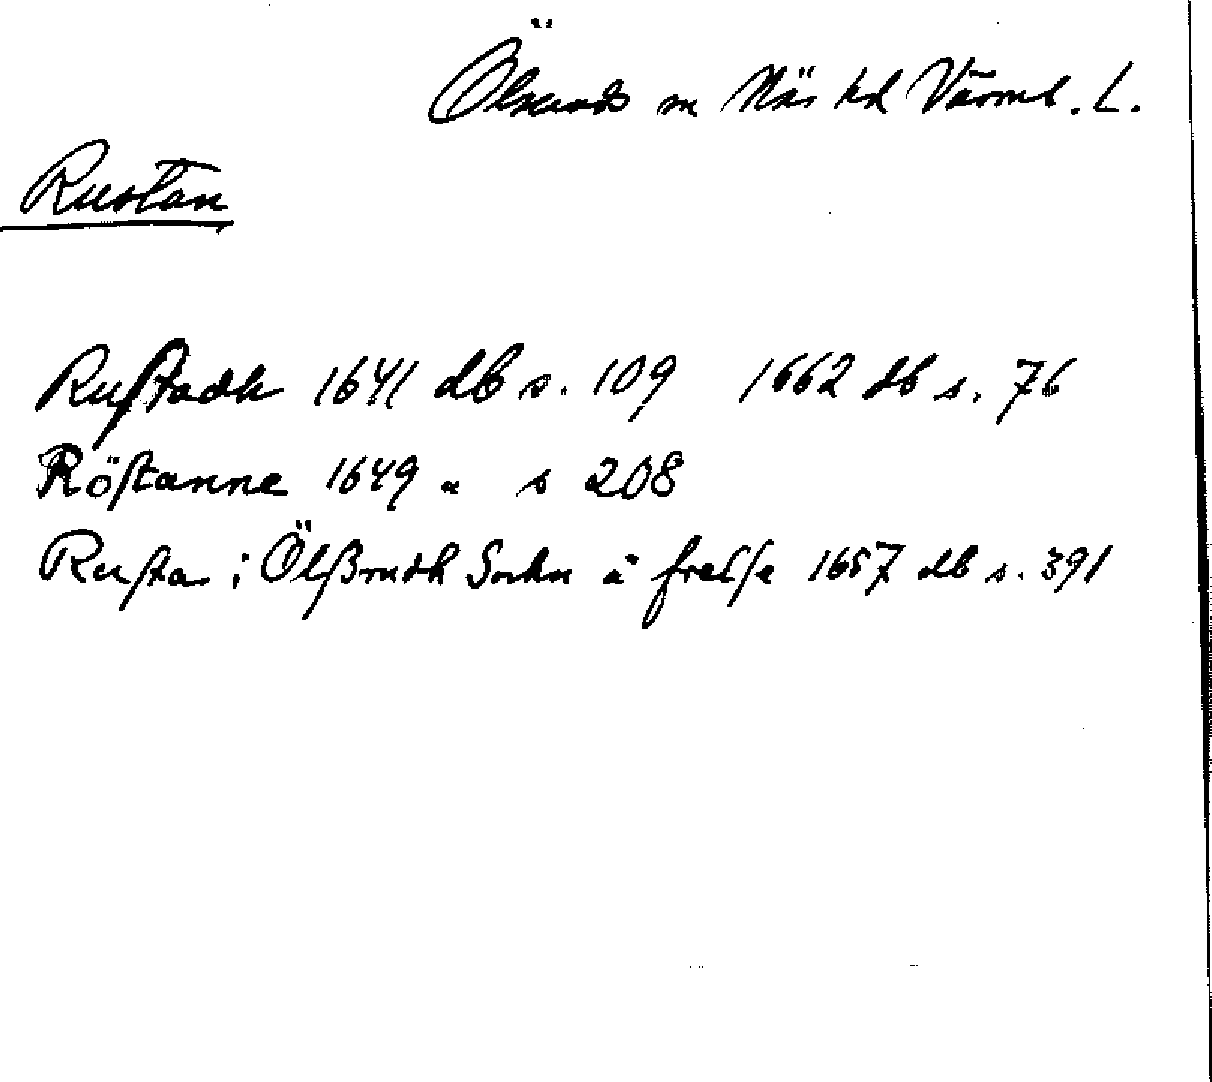 Ölseruds sn Näs hd Värml. L.
Rustan
Rustadh 1641 db s. 109 1662 db s. 76
Röstanne 1649 " s 208
Rusta i Ölßrudh Sochn i frelse 1657 db s. 391